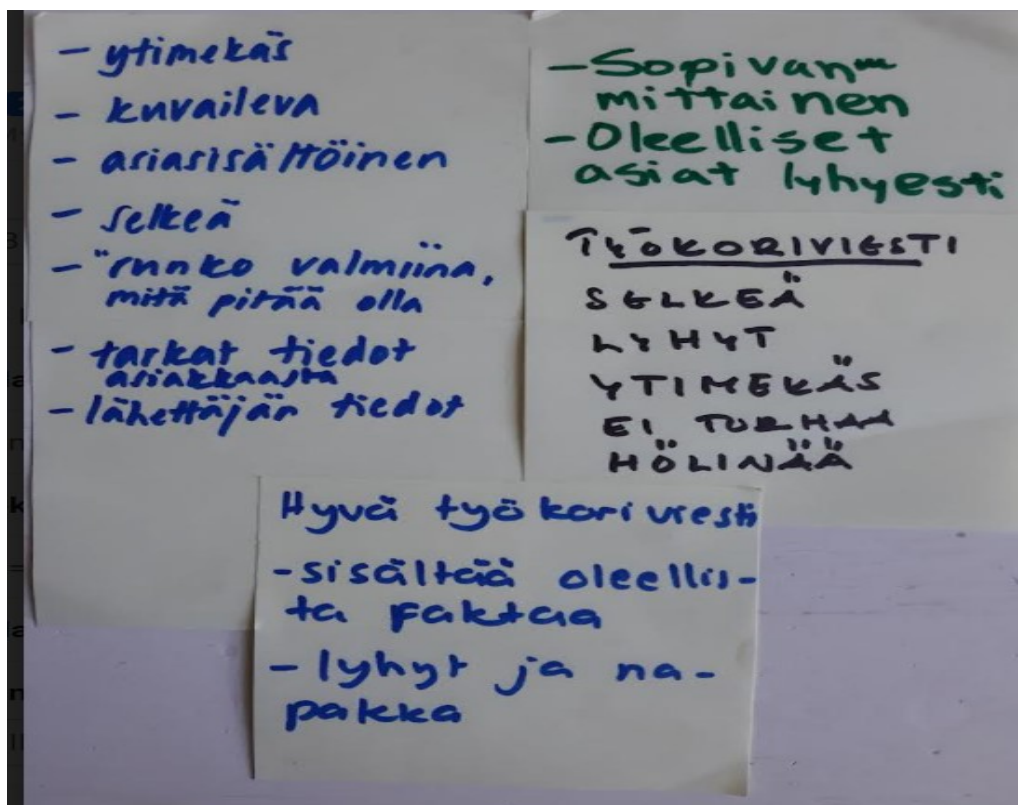 - ytimekäs
- kuvaileva
- asiasisältöinen
- selkeä
- "runko valmiina,
mitä pitää olla
- tarkat tiedot
asiakkaasta
- lähettäjän tiedot
- Sopivan
mittainen
- Oleelliset
asiat lyhyesti
TYÖKORIVIESTI
SELKEÄ
LYHYT
YTIMEKÄS
EI TURHAA
HÖLINÄÄ
Hyvä työkoriviesti
- sisältää oleellis-
ta faktaa
- lyhyt ja na-
pakka